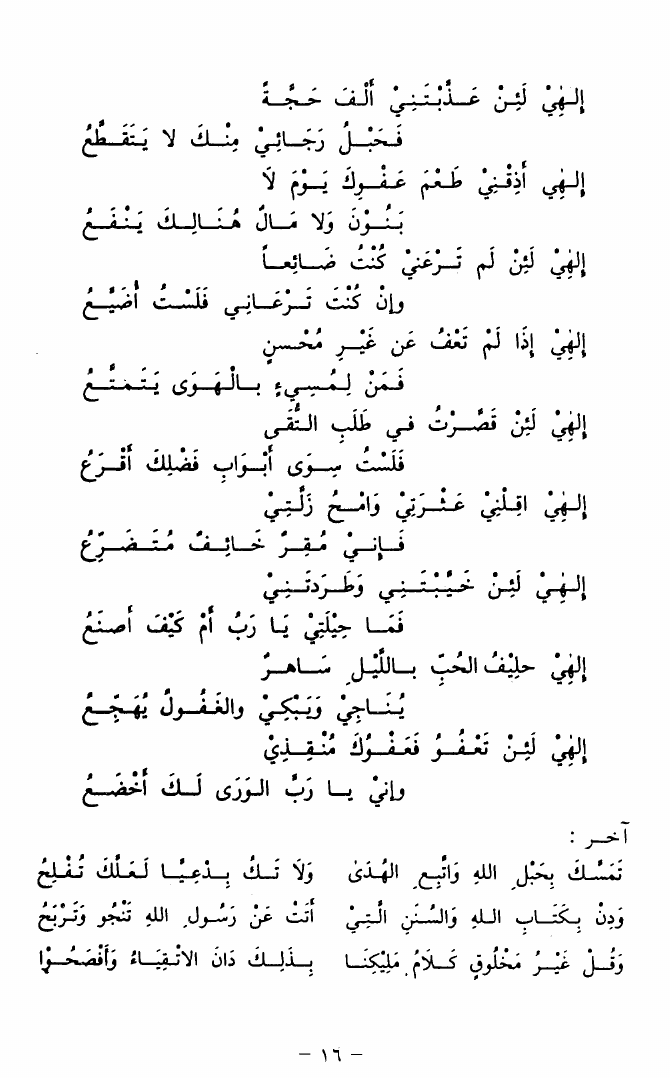 إِلـهِيْ لَئِنْ عَـذَّبْـتَـنِيْ أَلْـفَ حَـجَّـةً
فَـحَبْـلُ رَجَـائِيْ مِنْـكَ لا يَـتَـقَـطَّعُ
إِلـهِي أَذِقْـنِيْ طَـعْمَ عَـفْـوِكَ يَـوْمَ لَا
بَـنُـوْنَ وَلا مَـالٌ هُـنَـالِـكَ يَـنْـفَـعُ
إِلهِيْ لَئِنْ لَم تَـرْعَنيْ كُنْتُ ضَـائِعـاً
وإِنْ كُنْتَ تَـرْعَـانِي فَلَسْتُ أُضَيَّـعُ
إِلهِيْ إِذَا لَمْ تَعْفُ عَن غَيْـرِ مُحْـسنٍ
فَـمَنْ لِـمُسِـيءٍ بـالْـهَـوَى يَـتَـمـتَّـعُ
إِلهِيْ لَئِنْ قَصَّـرْتُ في طَلَبِ التُّقَـى
فَلَسْتُ سِـوَى أَبْـوَابِ فَضْلِكَ أَقْـرَعُ
إِلـهِيْ اقِـلْنِيْ عَـثْـرَتِيْ وَامْـحُ زَلَّـتِيْ
فَـإِنـيْ مُـقِـرٌ خَـائِـفٌ مُـتَـضَـرِّعُ
إِلـهِيْ لَئِـنْ خَـيَّـبْـتَـنِي وَطَـرَدتَـنِيْ
فَمَـا حِيْلَتِيْ يَـا رَبُ أَمْ كَيْفَ أَصنَعُ
إِلهِيْ حلِيْفُ الحُبِّ بـاللَّيْـلِ سَـاهـرٌ
يُـنَـاجِيْ وَيَـبْكِـيْ والغَفُـولُ يُهَـجِّـعُ
إِلهِيْ لَئِـنْ تَعْفُـو فَعَفْـوُكَ مُنْـقِـذِيْ
وإِنيْ يـا رَبَّ الـوَرَى لَـكَ أَخْضَـعُ
آخـر :
تَمَسَّكَ بِحَبْلِ اللهِ وَاتَّبِعِ الهُدَىٰ وَلَا تَـكُ بِـدْعِيَّـا لَعَلَّكَ تُـفْلِحُ
وَدِنْ بِكِتَـابِ اللهِ وَالسُّنَنِ الَّتِيْ أَتَتْ عَنْ رَسُولِ اللهِ تَنْجُو وَتَـرْبَحُ
وَقُـلْ غَيْـرُ مَخْلُوقٍ كَـلَامُ مَلِيْكِنَـا بِـذَلِـكَ دَانَ الاتْـقِيَـاءُ وَأَفْصَحُـوْا
- ١٦ -